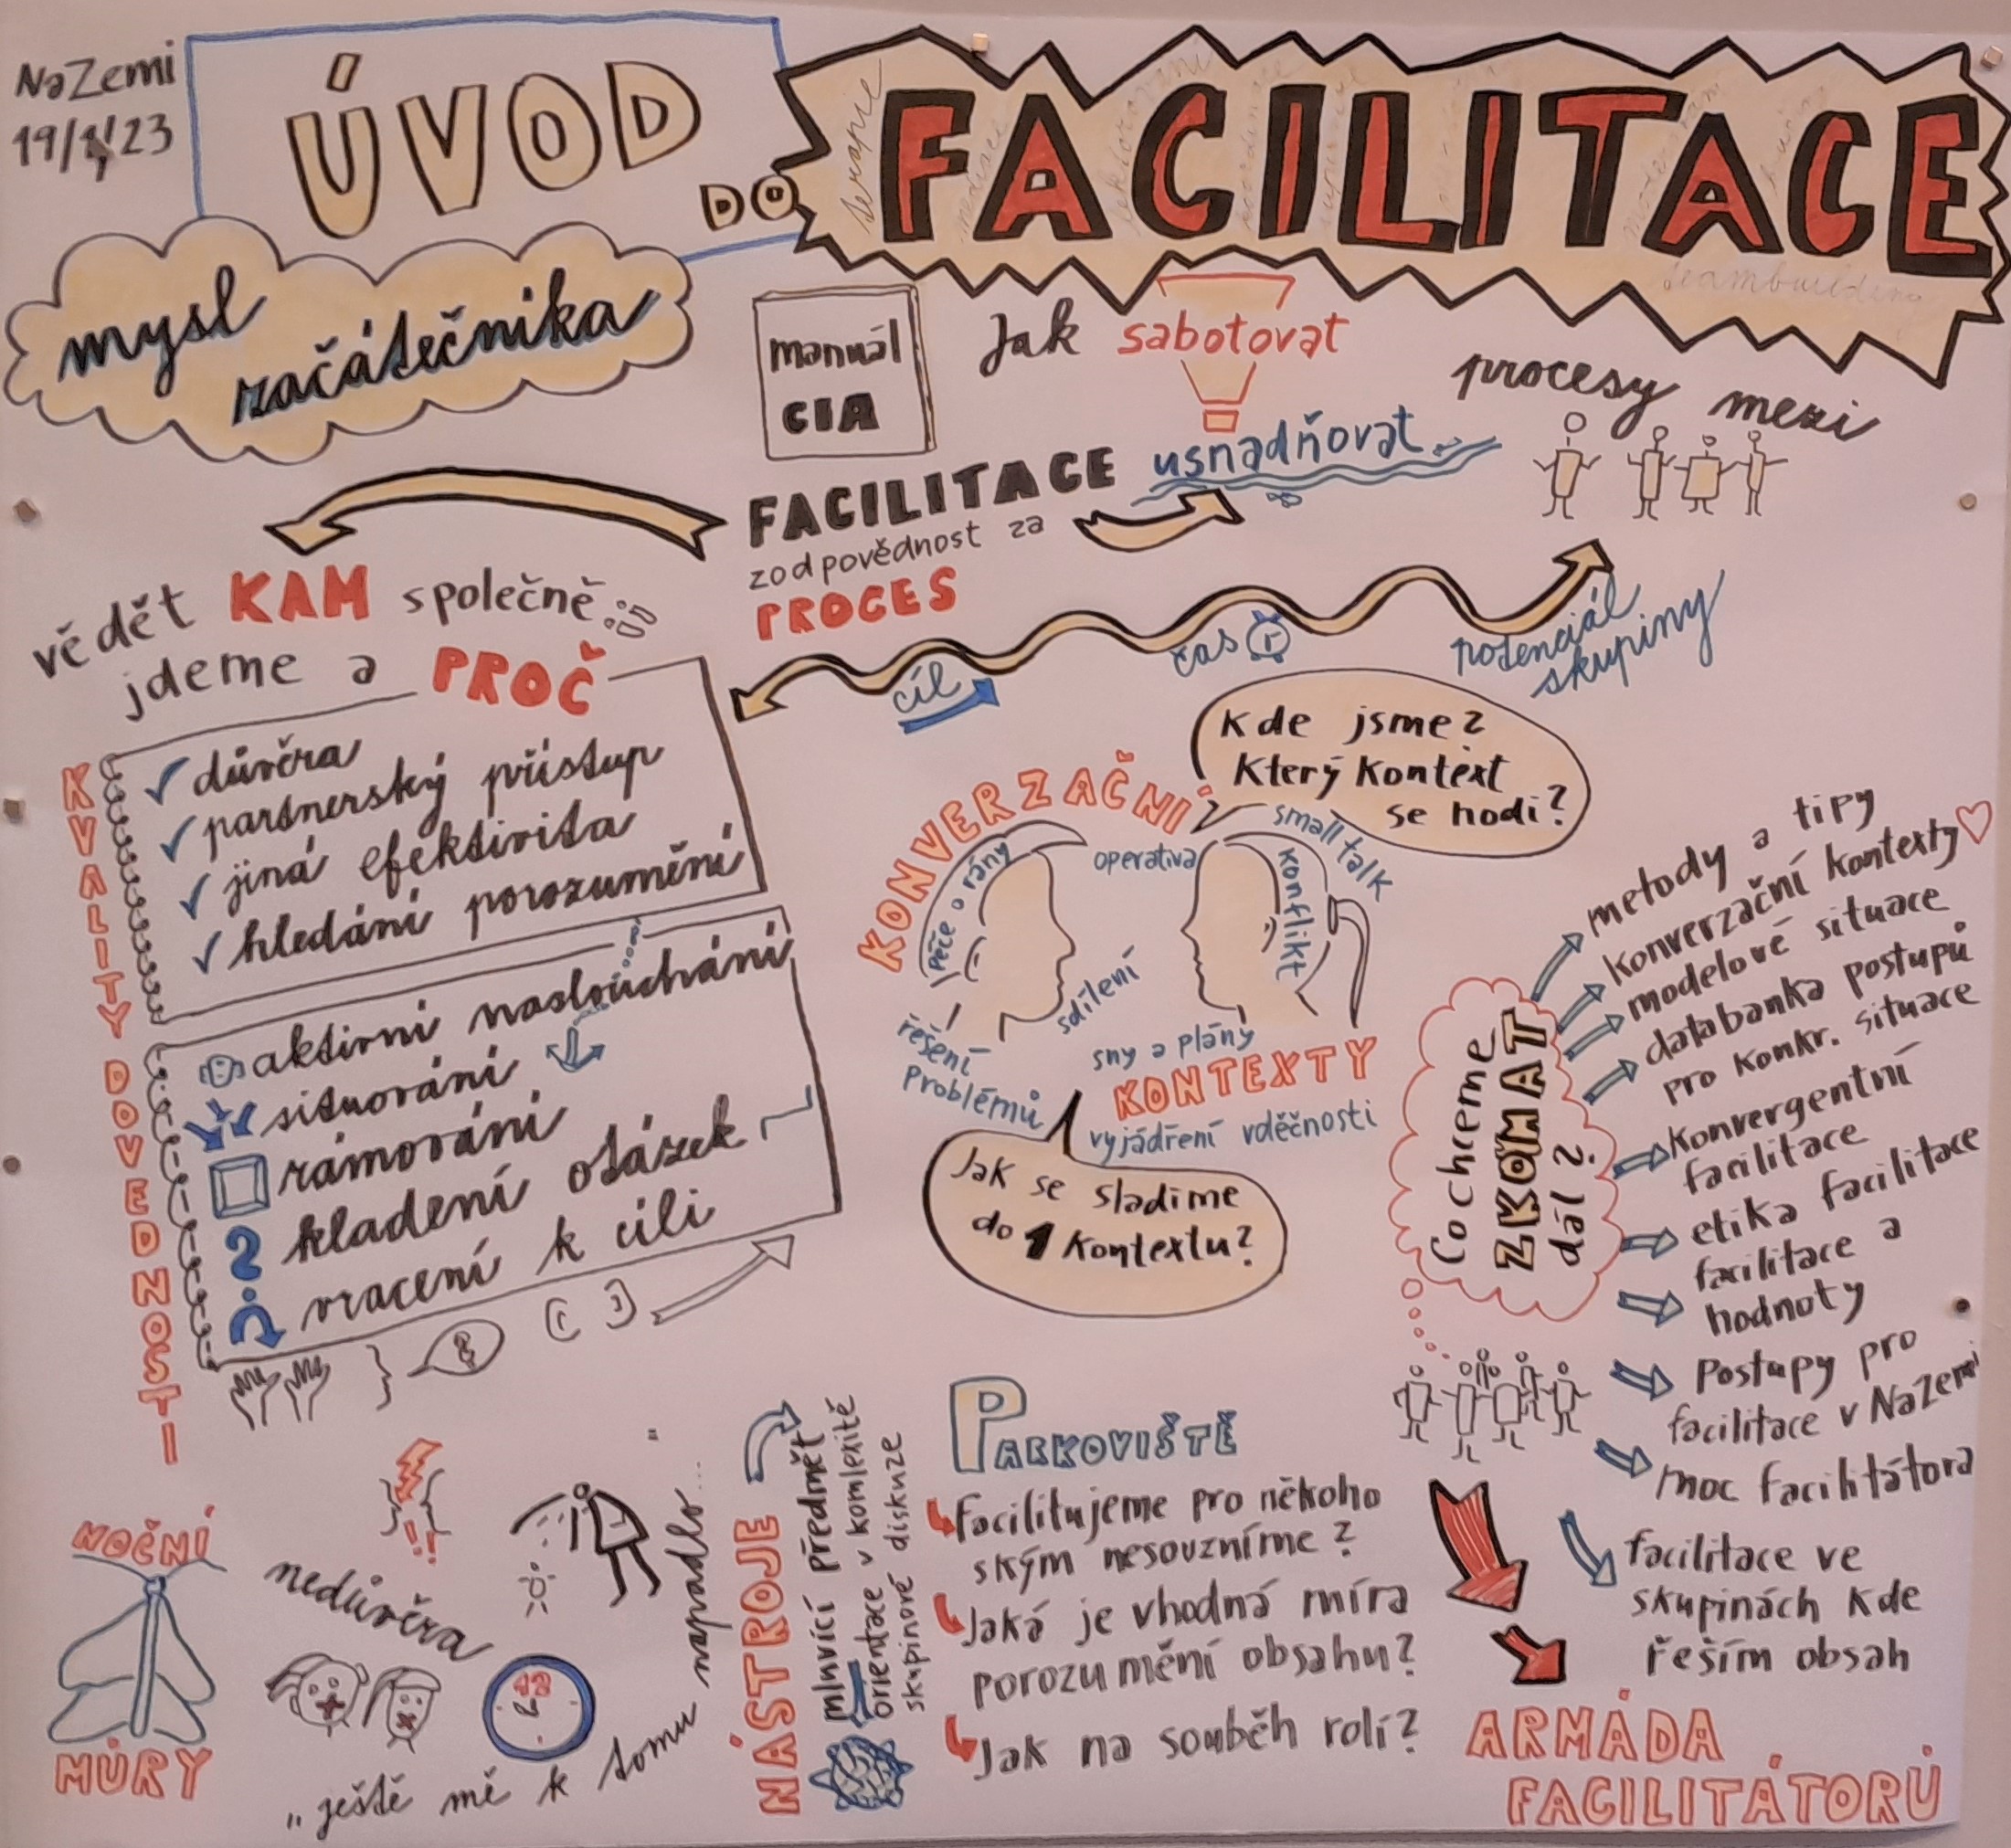 NaZemi
19/1/23
ÚVOD
DO
FACILITACE
terapie
teambuilding
mysl
začátečníka
manuál
CIA
Jak sabotovat
procesy mezi
FACILITACE
usnadňovat
zodpovědnost za
PROCES
vědět KAM společně
jdeme a PROČ
cíl
čas
potenciál
skupiny
KVALITY
důvěra
partnerský přístup
jiná efektivita
hledání porozumění
DOVEDNOSTI
aktivní naslouchání
situování
rámování
kladení otázek
vracení k cíli
KONVERZAČNÍ
Kde jsme?
Který Kontext
se hodí?
small talk
operativa
Péče o rány
konflikt
sdílení
řešení
Problémů
sny a plány
KONTEXTY
vyjádření vděčnosti
Jak se sladíme
do 1 Kontextu?
Co chceme
ZKOMAT
dál?
metody a tipy
konverzační kontexty
modelové situace
databanka postupů
pro konkr. situace
Konvergentní
facilitace
etika facilitace
facilitace a
hodnoty
Postupy pro
facilitace v NaZemi
moc facilitátora
facilitace ve
skupinách kde
řeším obsah
ARMÁDA
FACILITÁTORŮ
NOČNÍ
MŮRY
nedůvěra
12
„ještě mě k tomu napadlo..."
NÁSTROJE
mluvící předmět
orientace v komlexitě
skupinové diskuze
PARKOVIŠTĚ
Facilitujeme pro někoho
s kým nesouzníme?
Jaká je vhodná míra
porozumění obsahu?
Jak na souběh rolí?